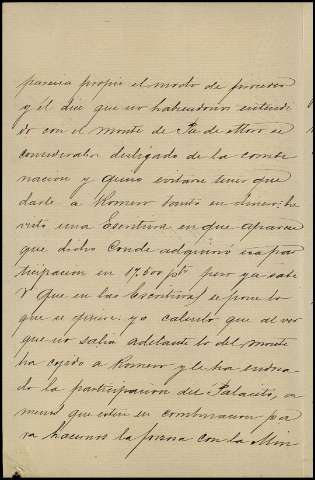 parecia propio el modo de proceder
y él dice que no habiendonos entendi
do con el monte de Pta de Moro se
consideraba desligado de la combi
nacion y quiso evitarse tener que
darle a Romero tanto en dinero he
visto una Escritura en que aparece
que dicho Conde adquirió esa par
ticipacion en 17.500 pts pero ya sabe
V que en las Escrituras se pone lo
que se quiere: yo calculo que al ver
que no salia adelante lo del monte
ha cojido a Romero y le ha endosa
do la participacion del Palacito, a
menos que esten en combinacion pa
ra hacernos la forzosa con la Min